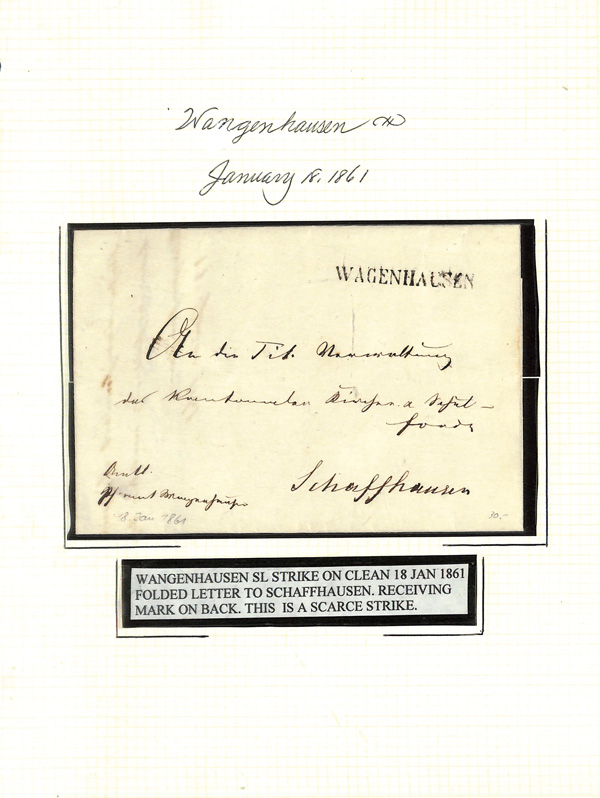 Wangenhausen
January 18, 1861
WAGENHAUSEN
An die Tit. Verwaltung
des Kantonalen Kirchen & Schul-
fonds
Schaffhausen
Amtl.
Pfarramt Wagenhausen
18. Jan 1861
30.-
WANGENHAUSEN SL STRIKE ON CLEAN 18 JAN 1861
FOLDED LETTER TO SCHAFFHAUSEN. RECEIVING
MARK ON BACK. THIS IS A SCARCE STRIKE.